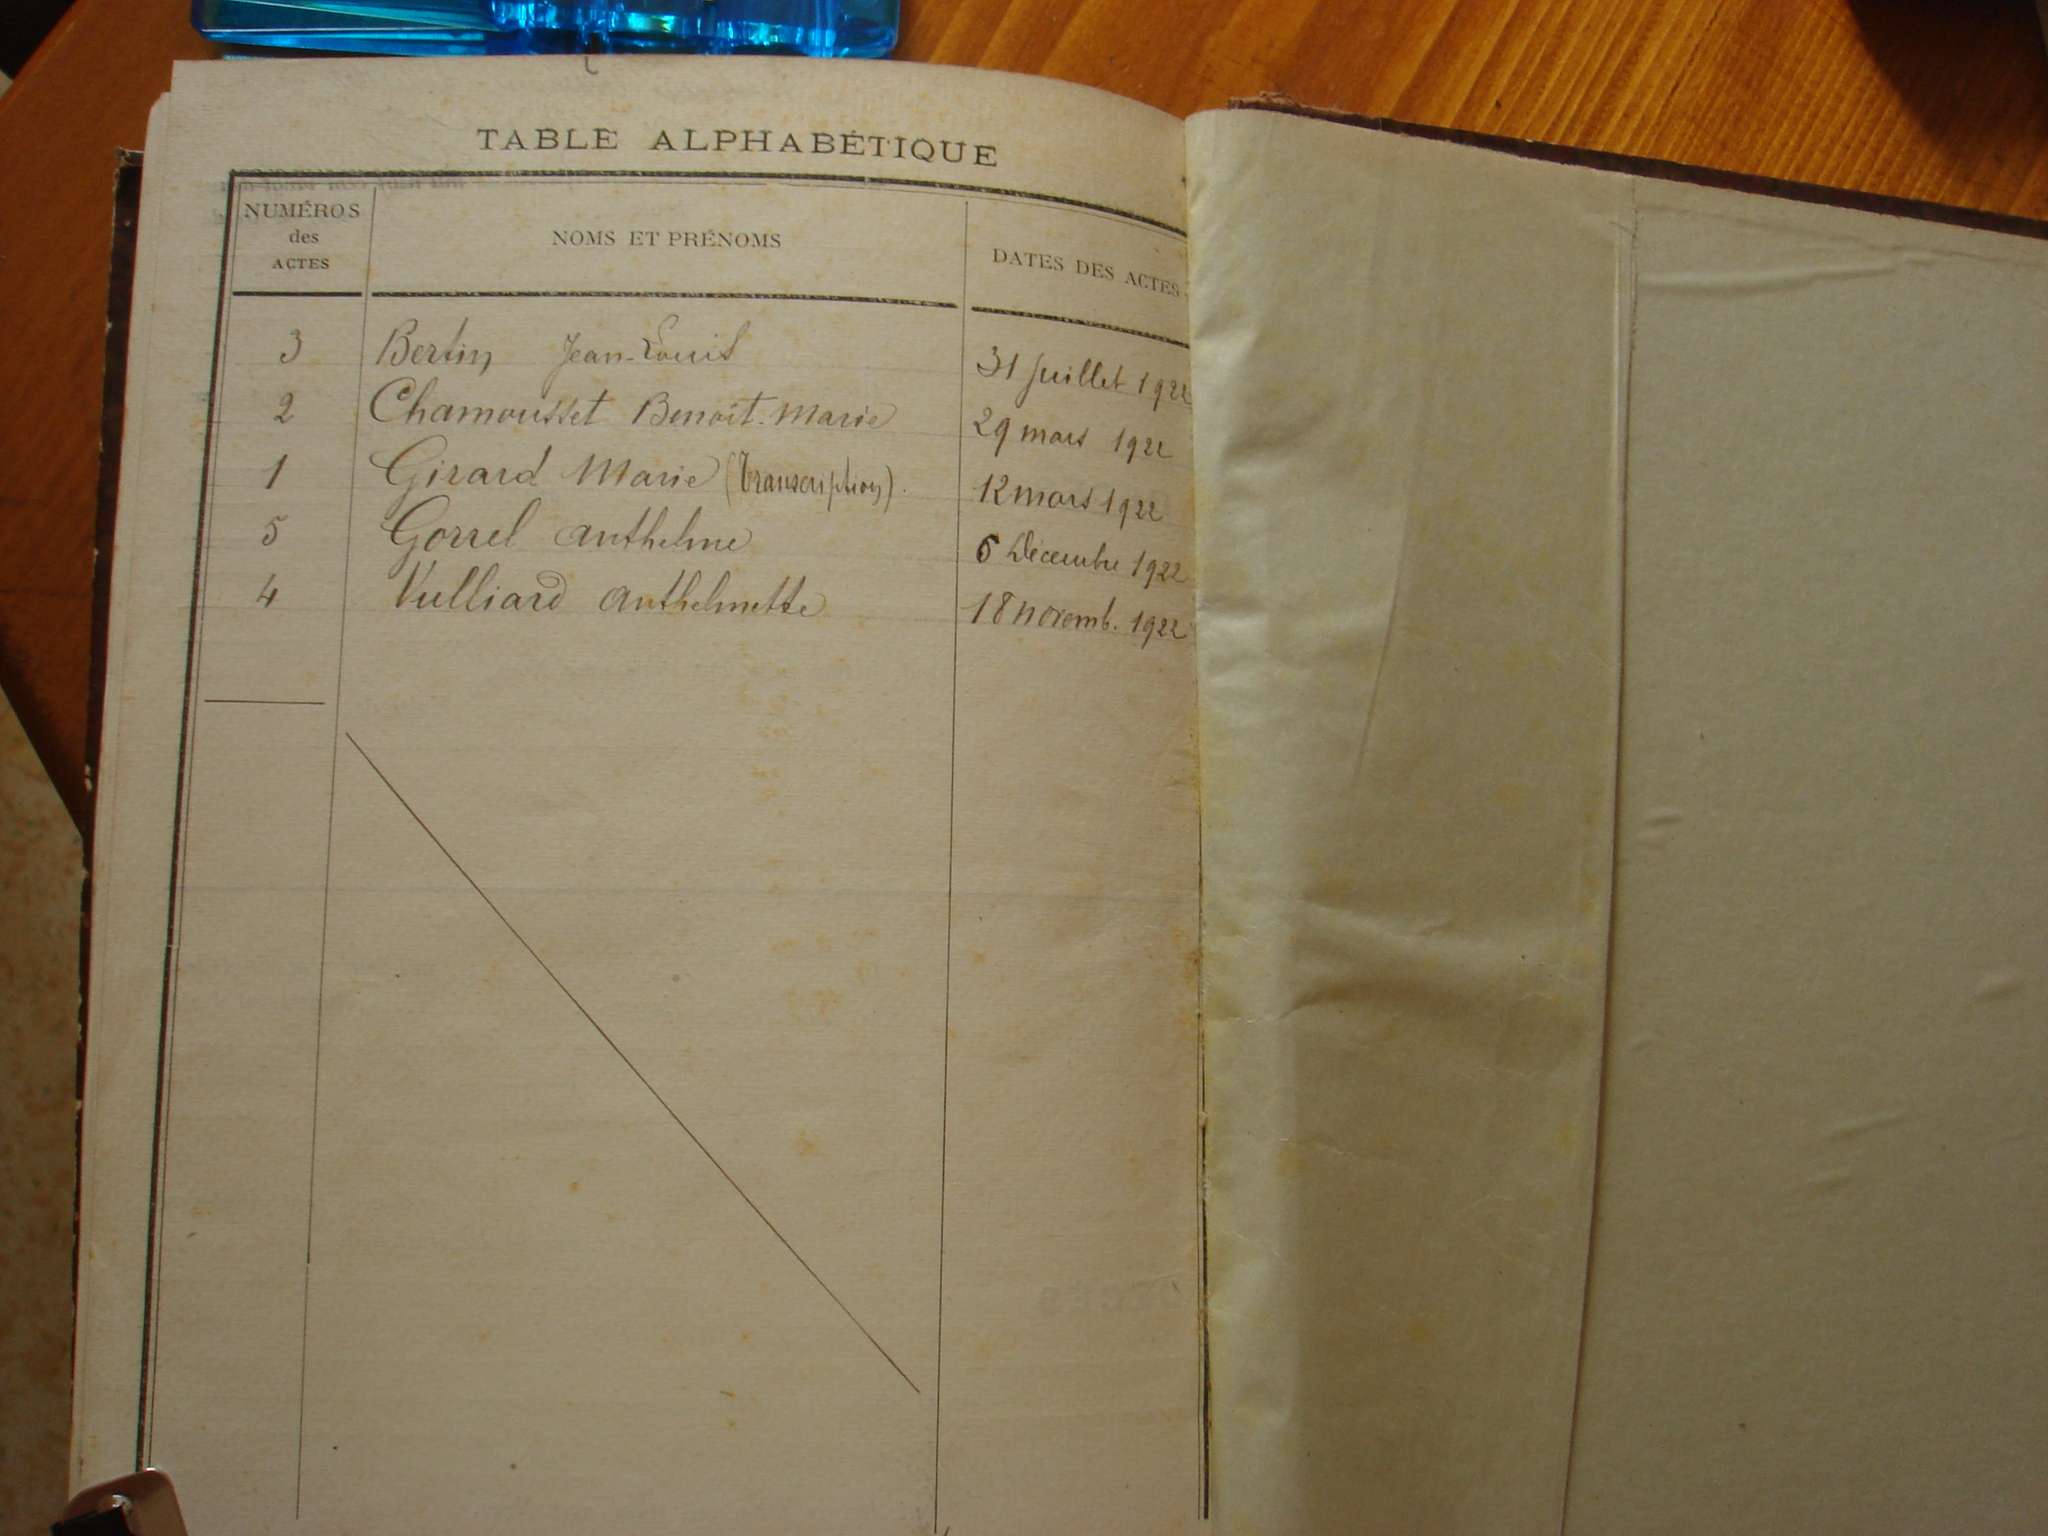 TABLE ALPHABÉTIQUE
NUMÉROS des ACTES NOMS ET PRÉNOMS DATES DES ACTES
3 Bertin Jean-Louis 31 Juillet 1922
2 Chamousset Benoît-Marie 29 mars 1922
1 Girard Marie (Transcription). 12 mars 1922
5 Gorrel Anthelme 6 Décembre 1922
4 Vulliard Anthelmette 18 novemb. 1922